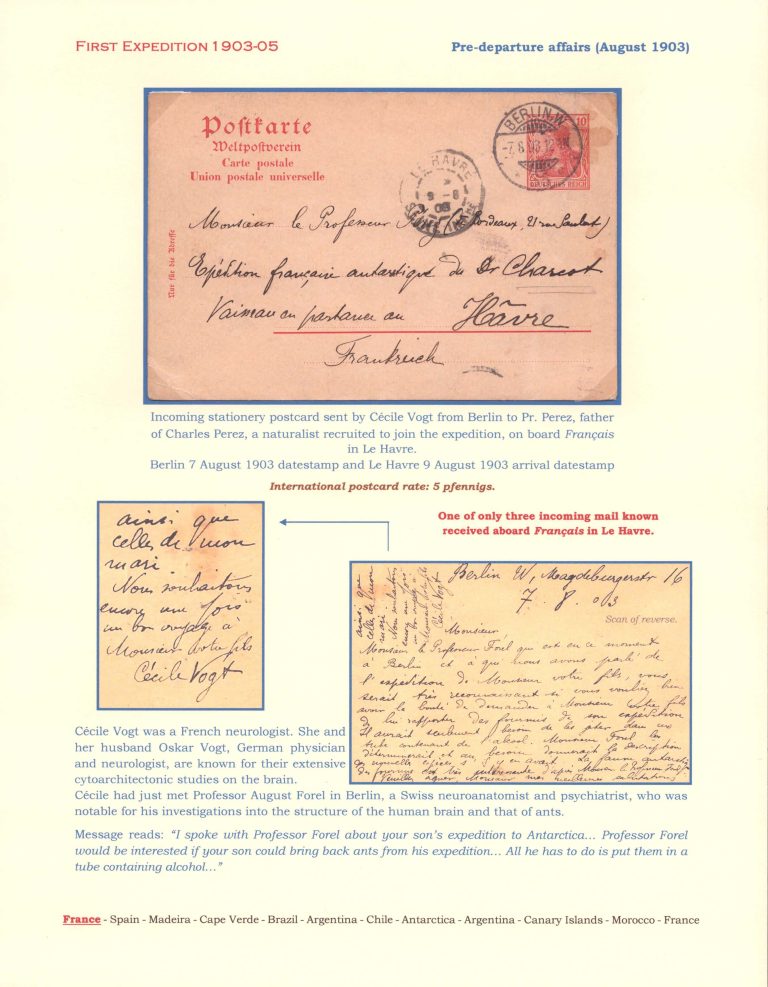 First Expedition 1903-05
Pre-departure affairs (August 1903)
Postkarte
Weltpostverein
Carte postale
Union postale universelle
BERLIN.W
-7.8.03.12-
10
DEUTSCHES REICH
LE HAVRE
9 - 8
03
SEINE INFRE
Nur für die Adresse
Monsieur le Professeur (Bordeaux, 21 rue
Expédition française antarctique du Dr Charcot
Vaisseau en partance au Hâvre
Frankreich
Incoming stationery postcard sent by Cécile Vogt from Berlin to Pr. Perez, father
of Charles Perez, a naturalist recruited to join the expedition, on board Français
in Le Havre.
Berlin 7 August 1903 datestamp and Le Havre 9 August 1903 arrival datestamp
International postcard rate: 5 pfennigs.
ainsi que
celles de mon
mari
Nous souhaitons
encore une fois
un bon voyage à
Monsieur votre fils
Cécile Vogt
One of only three incoming mail known
received aboard Français in Le Havre.
ainsi que
celles de mon
mari
Nous souhaitons
encore une fois
un bon voyage à
Monsieur votre fils
Cécile Vogt
Berlin W, Magdeburgerstr 16
7. 8. 03
Scan of reverse.
Monsieur,
Monsieur le Professeur Forel qui est en ce moment
à Berlin et à qui nous avons parlé de
l'expédition de Monsieur votre fils, vous
serait très reconnaissant si vous vouliez bien
avoir la bonté de demander à Monsieur votre fils
de lui rapporter des fourmis de son expédition
Il aurait seulement besoin de les jeter dans un
tube contenant de l'alcool. Monsieur Forel les
déterminerait et au besoin donnerait la description
des nouvelles espèces s'il y en avait. La faune antarctique
des fourmis est très intéressante d'après Monsieur le Professeur Forel
Veuillez agréer, Monsieur mes meilleures salutations
Cécile Vogt was a French neurologist. She and
her husband Oskar Vogt, German physician
and neurologist, are known for their extensive
cytoarchitectonic studies on the brain.
Cécile had just met Professor August Forel in Berlin, a Swiss neuroanatomist and psychiatrist, who was
notable for his investigations into the structure of the human brain and that of ants.
Message reads: “I spoke with Professor Forel about your son’s expedition to Antarctica… Professor Forel
would be interested if your son could bring back ants from his expedition… All he has to do is put them in a
tube containing alcohol…”
France - Spain - Madeira - Cape Verde - Brazil - Argentina - Chile - Antarctica - Argentina - Canary Islands - Morocco - France